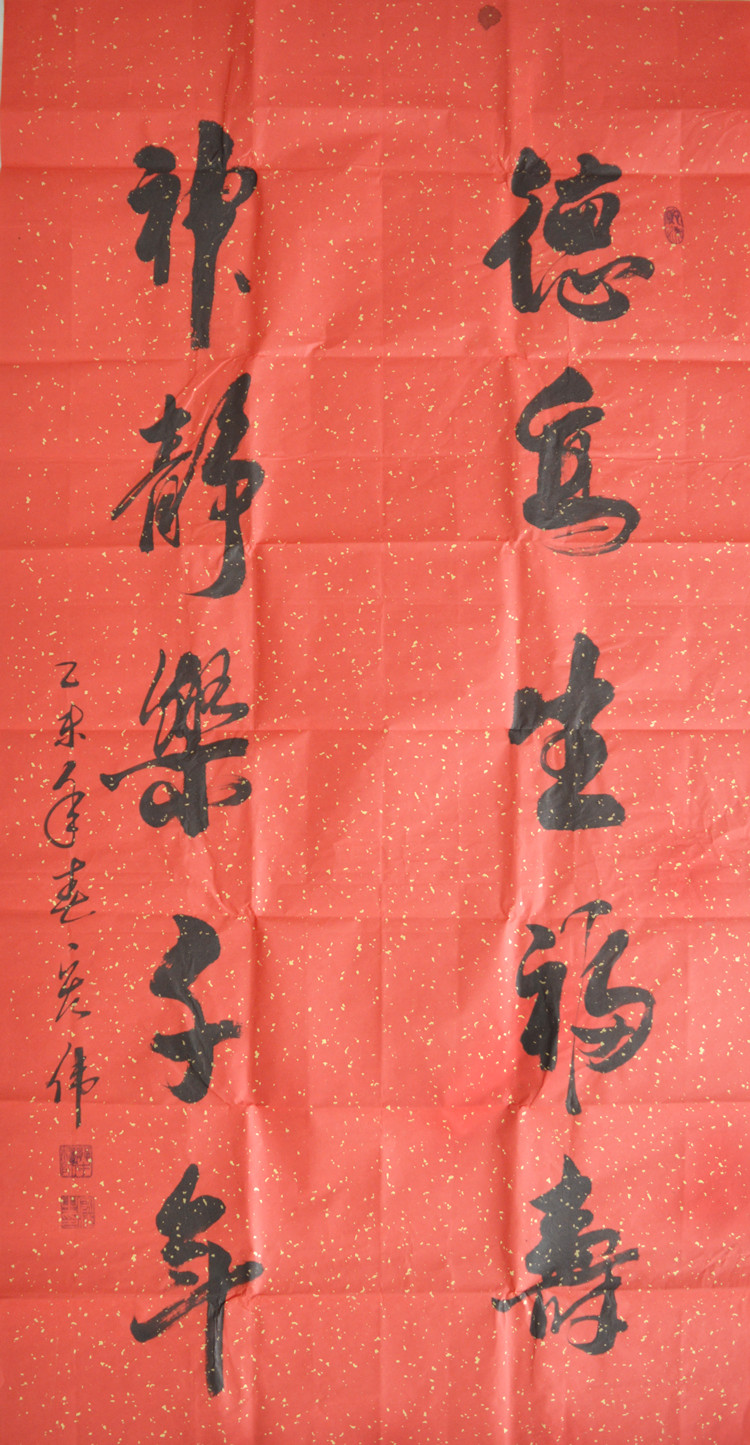 德為生福壽
神靜樂千年
乙未年春
伟